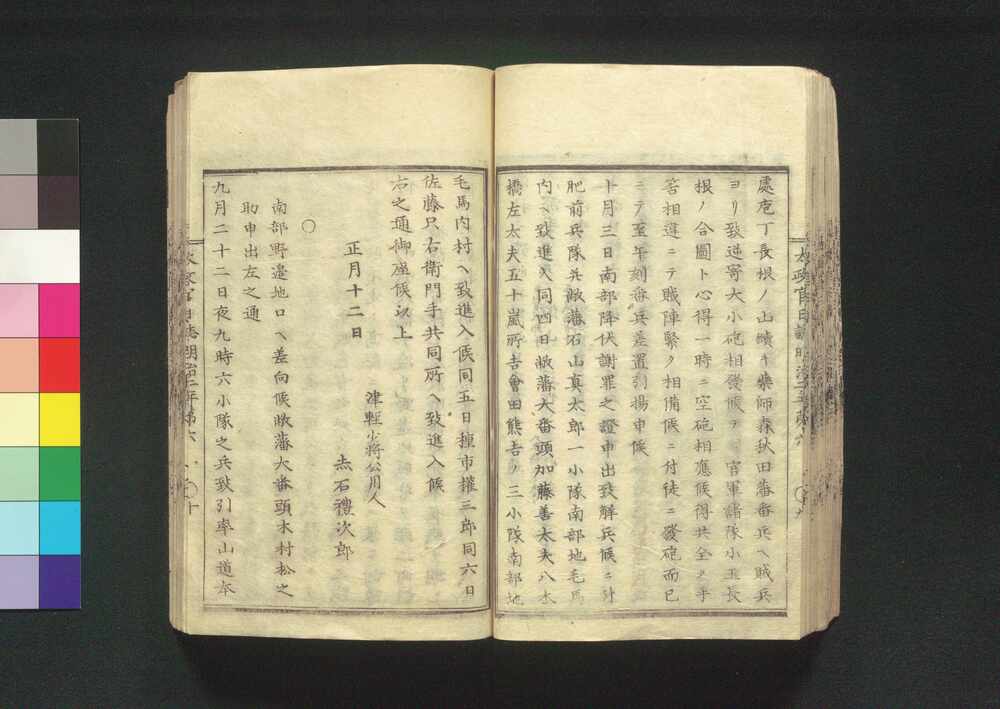 處庖丁長根ノ山續キ藥師森秋田藩番兵ヘ賊兵
ヨリ致逆寄大小砲相發候ヲ官軍諸隊小玉長
根ノ合圖ト心得一時ニ空砲相應候得共全ク手
筈相違ニテ賊陣緊ク相備候ニ付徒ニ發砲而已
ニテ至午刻番兵差置引揚申候
十月三日南部降伏謝罪之證申出致解兵候ニ付
肥前兵隊并敝藩石山真太郎一小隊南部地毛馬
内ヘ致進入同四日敝藩大番頭加藤善太夫八木
橋左太夫五十嵐所吉會田熊吉ノ三小隊南部地
太政官日誌明治二年第六
九
毛馬内村ヘ致進入候同五日樋市權三郎同六日
佐藤只右衛門手共同所ヘ致進入候
右之通御座候以上
正月十二日
津輕少將公用人
赤石禮次郎
○
南部野邊地口ヘ差向候敝藩大番頭木村松之
助申出左之通
九月二十二日夜九時六小隊之兵致引率山道本
太政官日誌明治二年第六
十